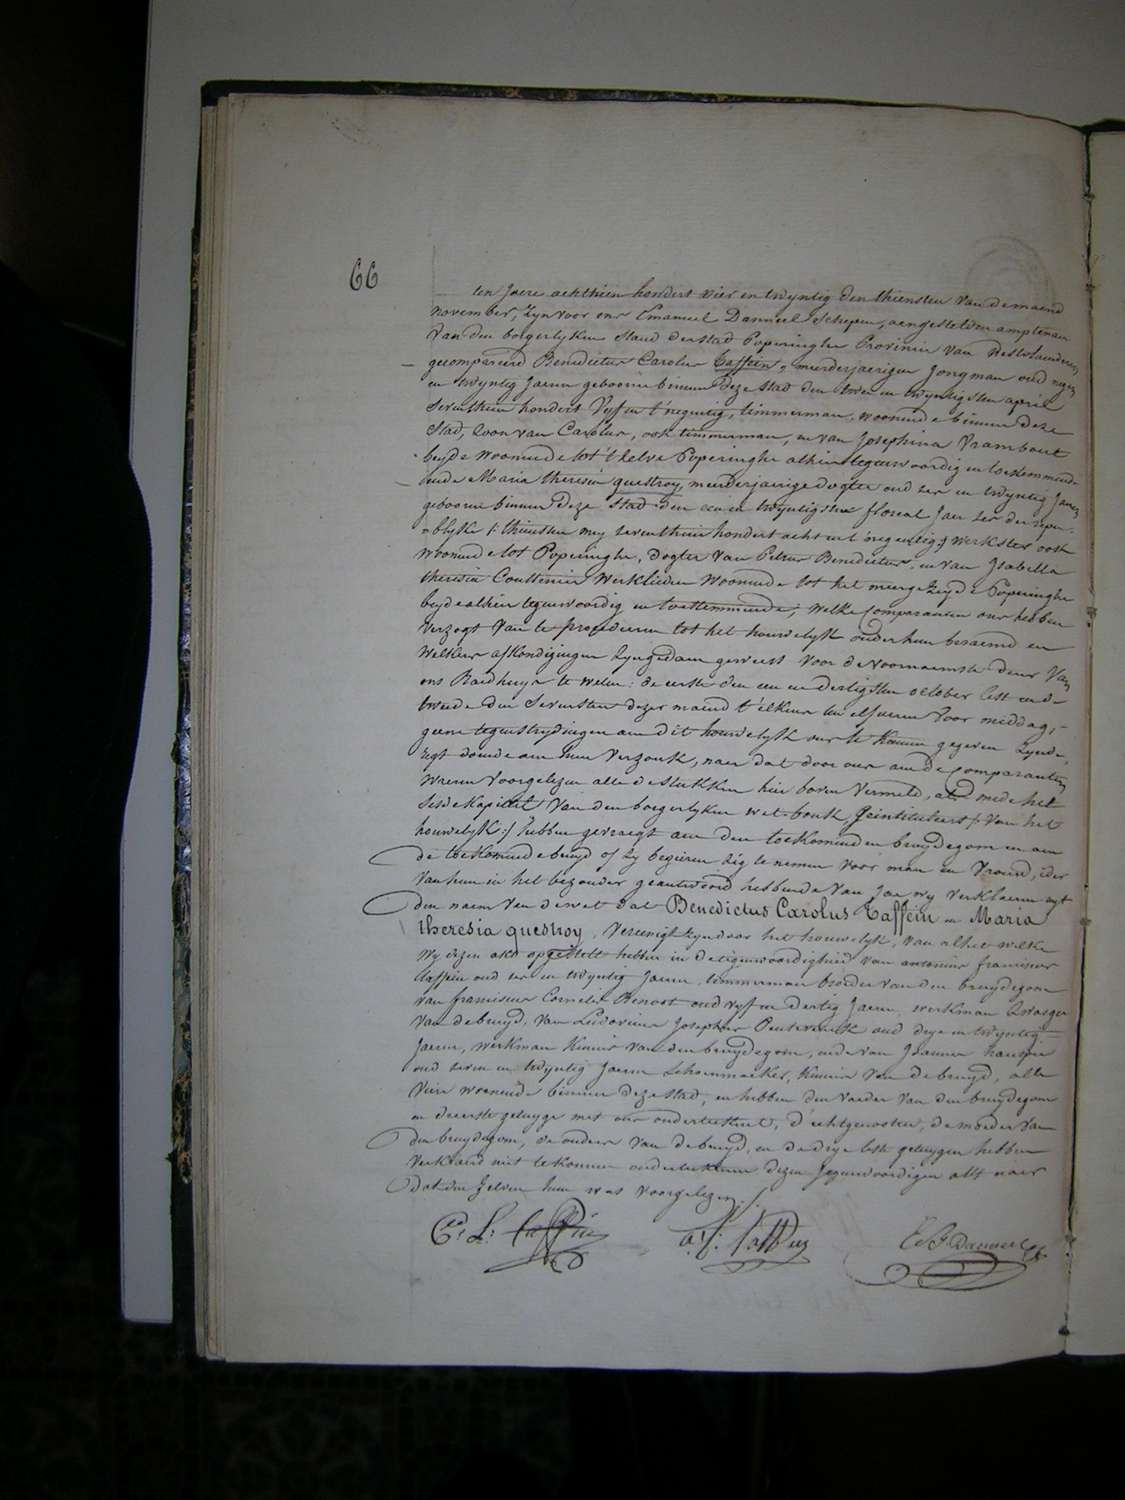 66
ten Jaere achthien hondert vier en twyntig den thiensten van de maend
november, zyn voor ons Emanuel Danneel Schepen, aengestelden amptenaer
van den borgerlyken staend der stad Poperinghe Provincie van Westvlaenderen
gecompareerd Benedictus Carolus Taffein, meerderjaerigen jongman oud negen
en twyntig Jaeren geboren binnen deze stad den twee en twyntigsten april
seventhien hondert vyf en t'negentig, timmerman, woonende binnen deze
stad, zoon van Carolus, ook timmerman, en van Josephina Vrambout
beyde woonende tot 't zelve Poperinghe alhier tegenwoordig en toestemmende
ende Maria theresia questroy, meerderjaerige dogter oud zes en twyntig Jaeren
geboren binnen deze stad den een en twyntigsten floreal Jaer zes der repu-
blyke /: thiensten mey seventhien hondert acht en t'negentig :/ werkster ook
woonende tot Poperinghe, dogter van Petrus Benedictus, en van Isabella
theresia Coustenin werklieden woonende tot het meergezeyde Poperinghe
beyde alhier tegenwoordig en toestemmende, welke comparanten ons hebben
verzogt van te procedeeren tot het houwelyk onder hun beraemd en
welkers afkondigingen zyn gedaen geweest voor de voornaemste deure van
ons Raedhuys te weten: de eerste den een en dertigsten october lest en de
tweede den sevensten dezer maend t'elkens ten elf uren voor middag,
geene tegenstrydingen aen dit houwelyk ons te kennen gegeven zynde,
regt doende aen hun verzoek, naer dat door ons aen de comparanten
waeren voorgelezen alle de stukken hier boven vermeld, als mede het
sesde kapittel van den borgerlyken wet-bouk geintituleert /: van het
houwelyk :/ hebben gevraegt aen den toekomenden bruydegom en aen
de toekomende bruyd of zy begeiren zig te nemen voor man en vrouw, ider
van hun in het bezonder geantwoord hebbende van Jae wy verklaeren uyt
den naem van de wet dat Benedictus Carolus Taffein en Maria
theresia questroy, vereenigt zyn door het houwelyk, van al het welke
wy dezen akt opgestelt hebben in de tegenwoordigheid van antonius franciscus
taffein oud zes en twyntig Jaeren, timmerman broeder van den bruydegom
van franciscus Cornelis Benoot oud vyf en dertig Jaeren, werkman zwaeger
van de bruyd, van Ludovicus Josephus oud drye en twyntig
Jaeren, werkman kennis van den bruydegom, ende van Joannes
oud seven en twyntig Jaeren schoenmaeker, kennis van de bruyd, alle
viere woonende binnen deze stad, en hebben den vaeder van den bruydegom
en d'eerste getuyge met ons onderteekent, d'echtgenooten, de moeder van
den bruydegom, de ouders van de bruyd, en de drye leste getuygen hebben
verklaerd niet te konnen onderteekenen dezen jegenwoordigen akt naer
dat den zelven hun was voorgelezen /.
C: L: taffein
a. f: taffein
E F Danneel